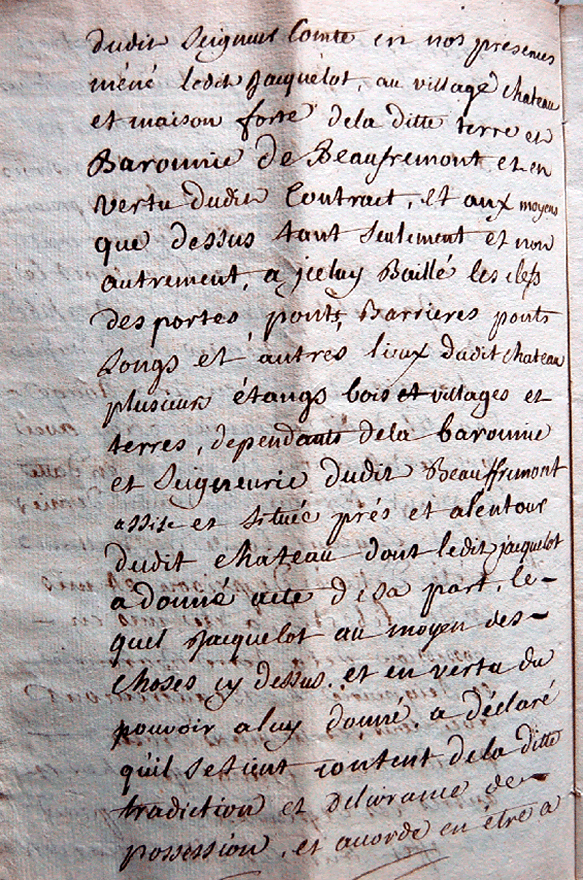 dudit Seigneur Comte en nos presences
méné ledit Jacquelot, au village chateau
et maison forte dela ditte terre et
Baronnie de Beaufremont et en
vertu dudit Contract, et aux moyens
que dessus tant seulement et non
autrement, a jceluy Baillé les clefs
des portes, ponts, Barrieres ponts
Longs et autres lieux dudit chateau
plusieurs étangs bois et villages et
terres, dependants dela baronnie
et Seigneurie dudit Beauffremont
assise et située prés et alentour
dudit chateau dont ledit jacquelot
a donné acte desa part, le-
quel Jacquelot au moyen des-
choses cy dessus, et en vertu du
pouvoir aluy donné, a déclaré
quil setient content dela ditte
tradiction et delivrance de-
possession, et accorde en être a